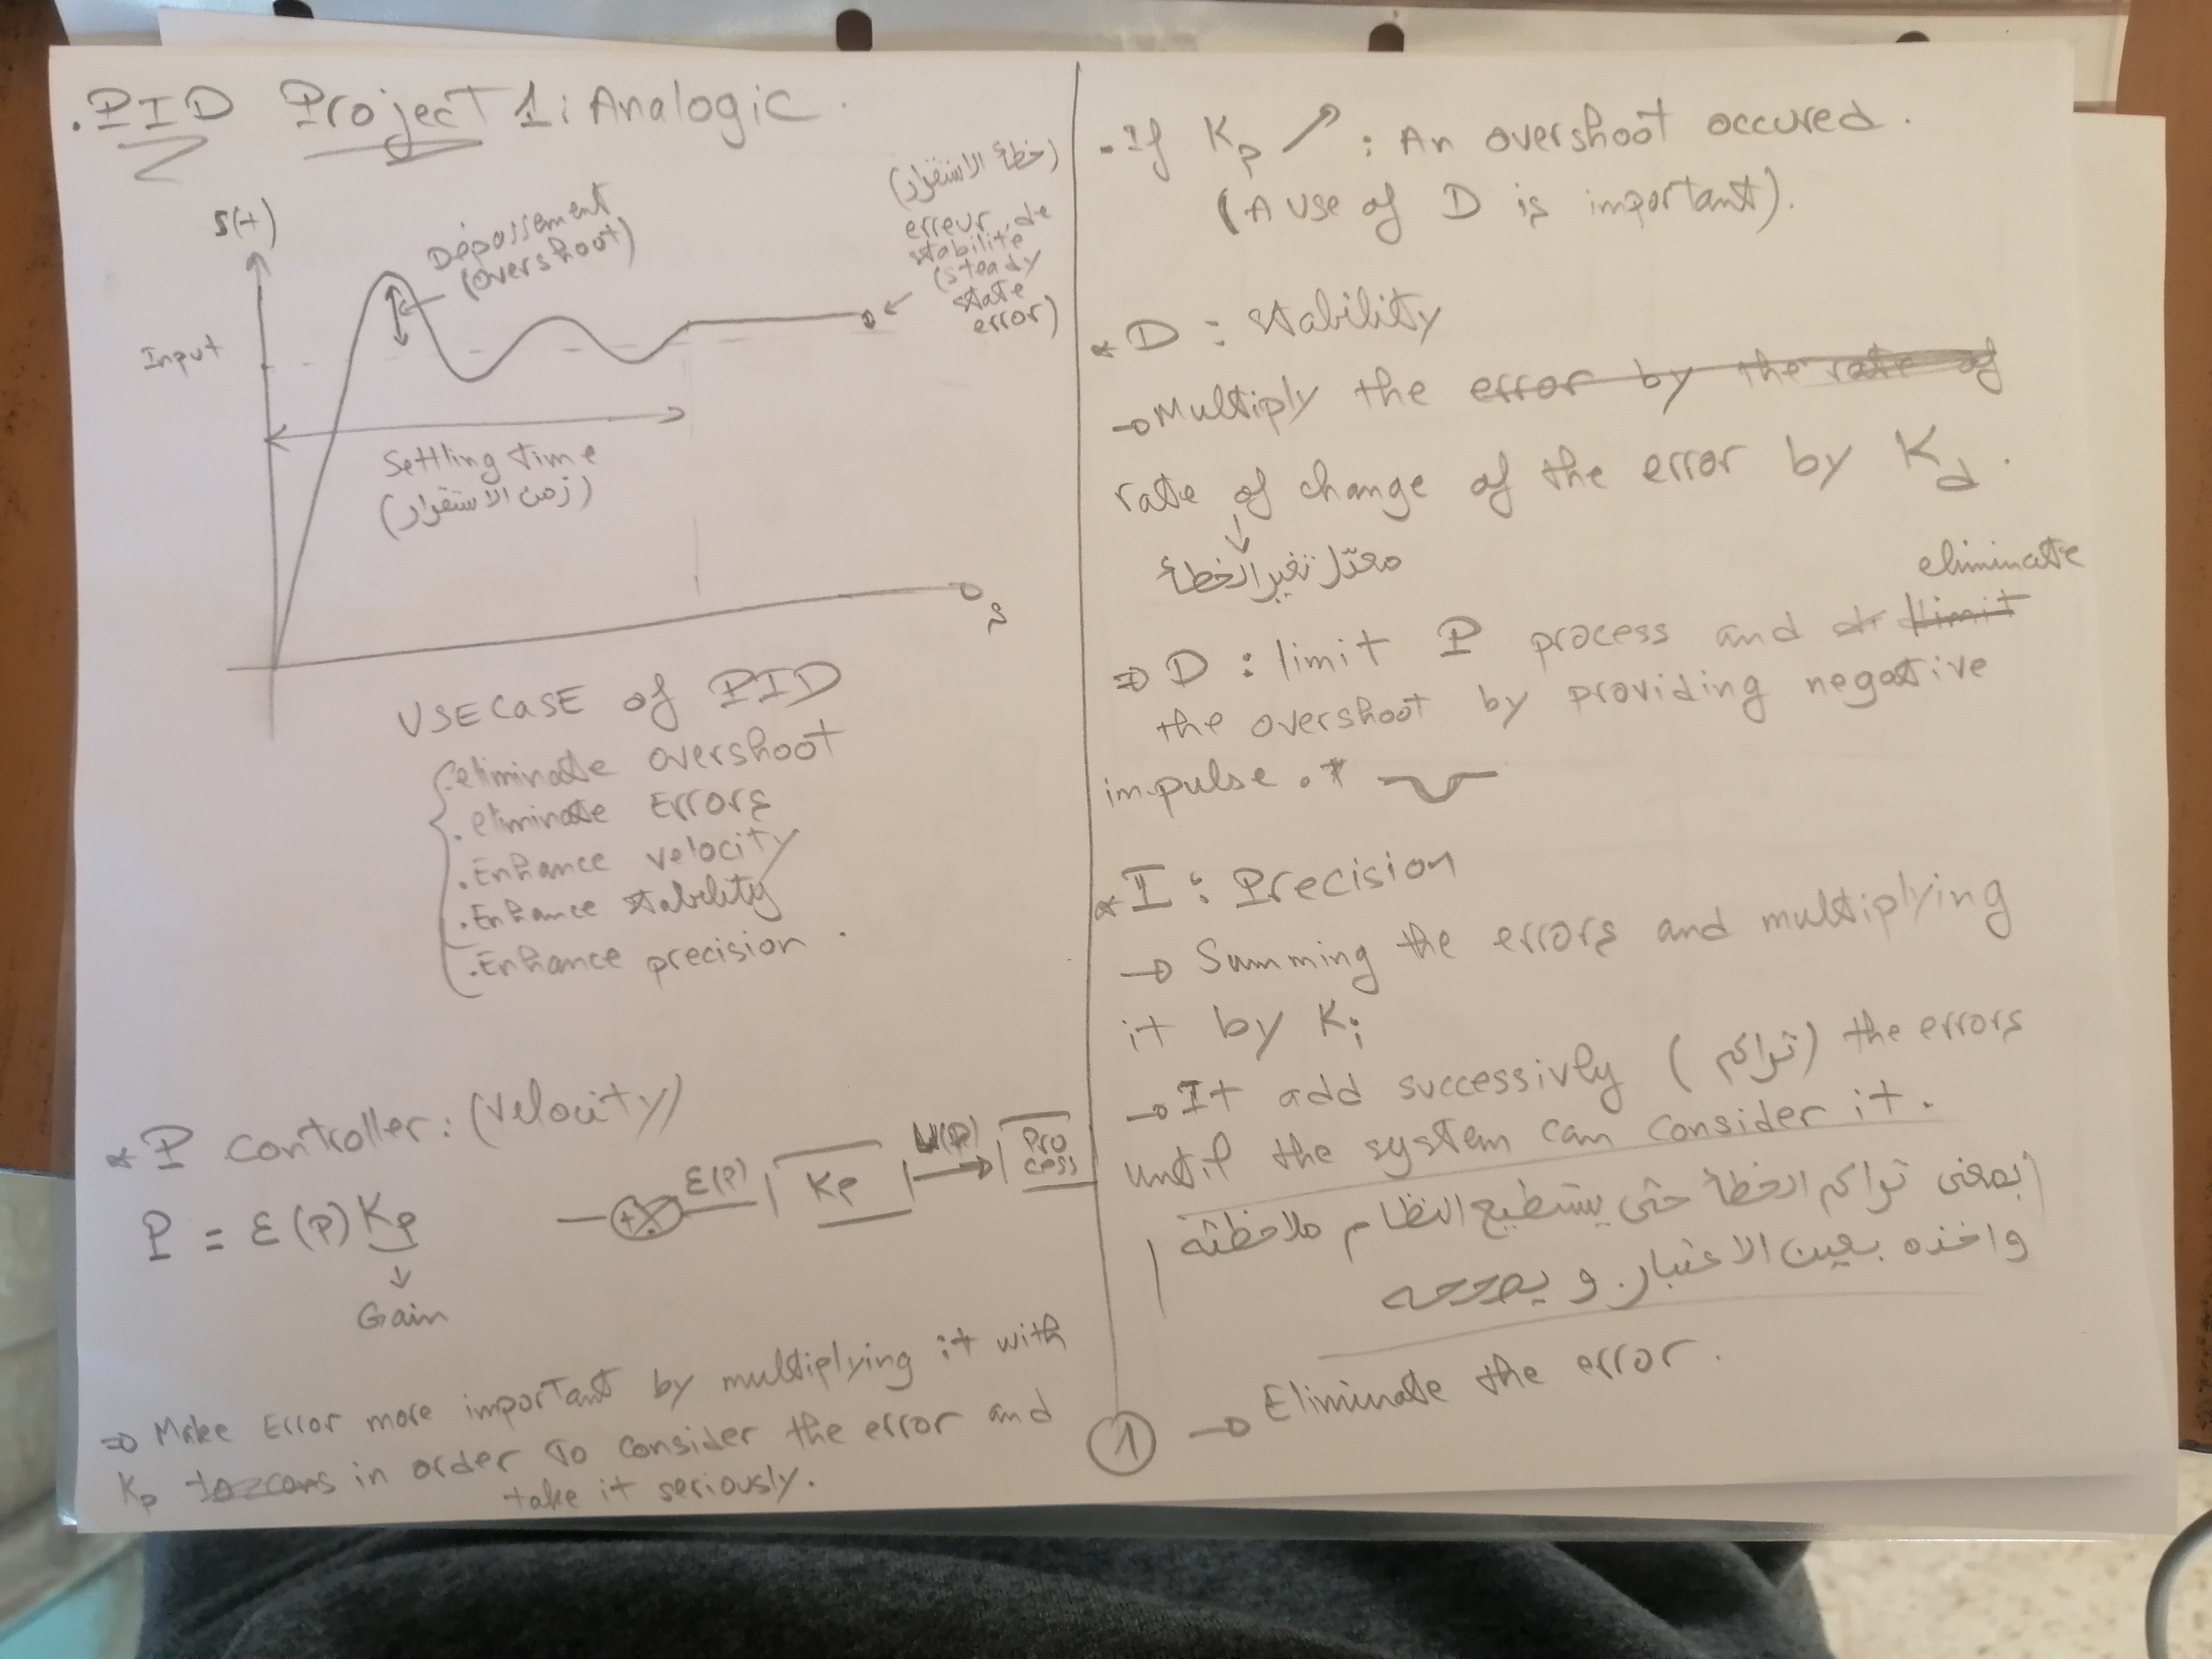 . PID Project 1 : Analogic .
(خطأ الاستقرار)
erreur de
stabilité
(steady
state
error)
S(t)
Dépassement
(overshoot)
Input
Settling time
(زمن الاستقرار)
s
USECASE of PID
. eliminate overshoot
. eliminate Errors
. Enhance velocity
. Enhance stability
. Enhance precision .
* P controller : (velocity)
P = ε(p) Kp
Gain
ε(p) Kp U(p) Pro
cess
⇒ Make Error more important by multiplying it with
Kp in order To consider the error and
take it seriously.
- If Kp ↗ : An overshoot occured .
(A use of D is important).
* D : stability
→ Multiply the error by the rate of
rate of change of the error by Kd .
↓
معدّل تغير الخطأ
eliminate
⇒ D : limit P process and limit
the overshoot by providing negative
impulse .
* I : Precision
→ Summing the errors and multiplying
it by Ki
→ It add successively (تراكم) the errors
until the system can consider it .
بمعنى تراكم الخطأ حتى يستطيع النظام ملاحظته
واخذه بعين الاعتبار . و يصححه
① → Eliminate the error .